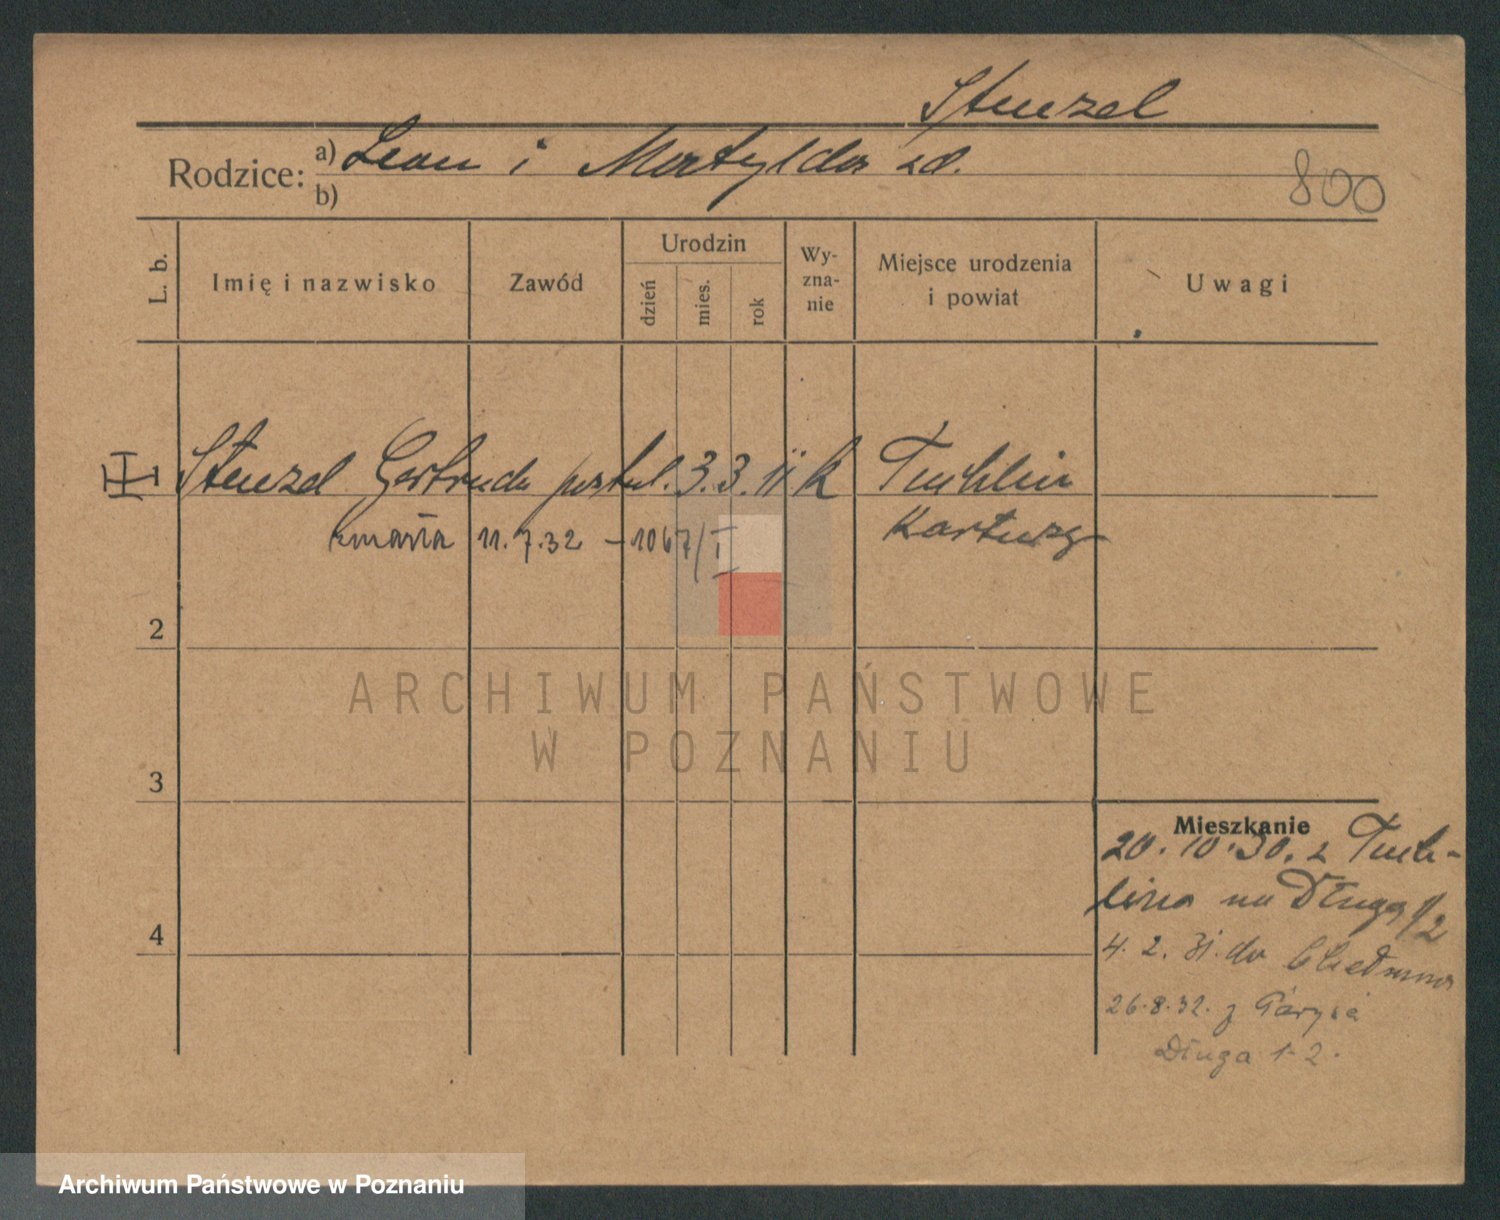 Stenzel
Rodzice: a) Leon i Matylda zd.
b)
800
L. b.
Imię i nazwisko
Zawód
Urodzin
dzień
mies.
rok
Wy-
zna-
nie
Miejsce urodzenia
i powiat
Uwagi
Stenzel Gertruda postul. 3. 3. 11 k Tuchlin
Kartuzy
zmarła 11.7.32 – 1067/I
2
ARCHIWUM PAŃSTWOWE
W POZNANIU
3
4
Mieszkanie
20. 10. 30. z Tuch-
lina na Długa 1/2
4. 2. 31. do
26.8.32. z
Długa 1-2.
Archiwum Państwowe w Poznaniu